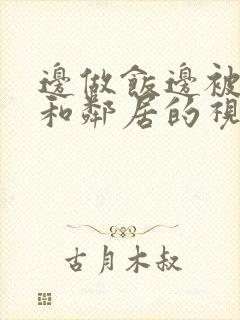 邊做飯邊被
和鄰居的視
古月木叔